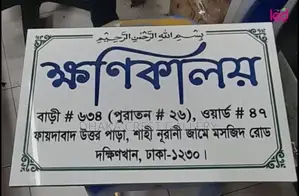 بِسْمِ اللهِ الرَّحْمٰنِ الرَّحِيْمِ
ক্ষণিকালয়
বাড়ী # ৬৩৪ (পুরাতন # ২৬), ওয়ার্ড # ৪৭
ফায়দাবাদ উত্তর পাড়া, শাহী নূরানী জামে মসজিদ রোড
দক্ষিণখান, ঢাকা-১২৩০।